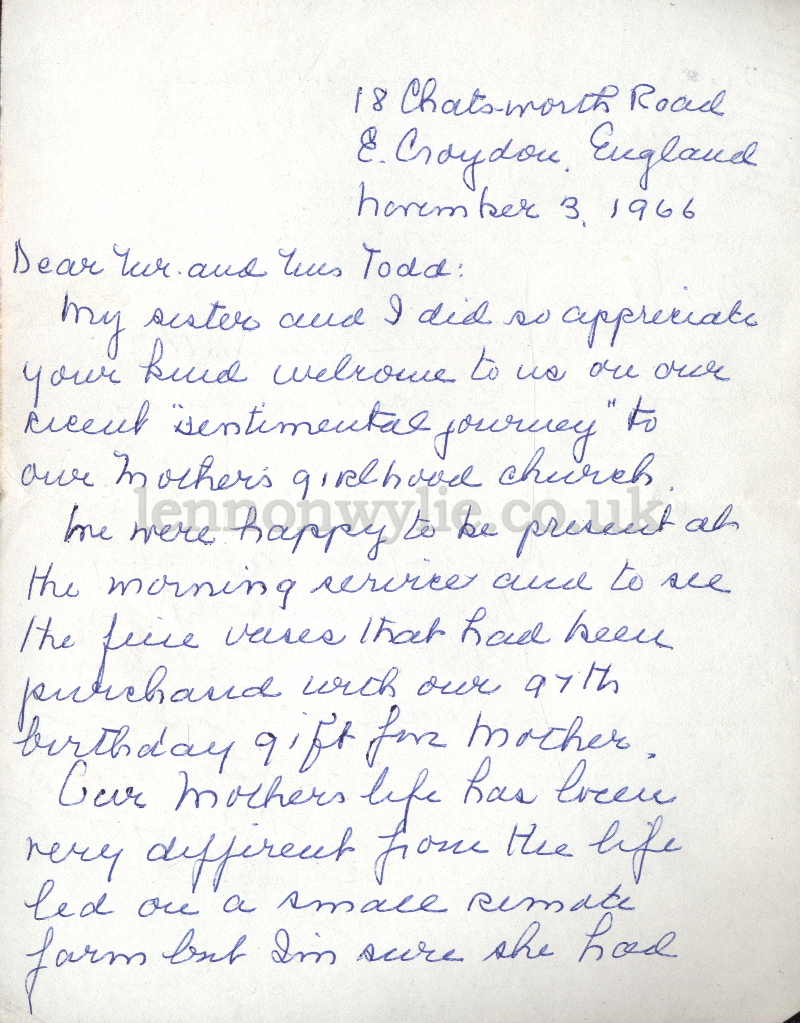 18 Chatsworth Road
E. Croydon, England
November 3, 1966
Dear Mr. and Mrs Todd:
My sister and I did so appreciate
your kind welcome to us on our
recent "sentimental journey" to
our Mother's girlhood church.
lennonwylie.co.uk
We were happy to be present at
the morning service and to see
the fine vases that had been
purchased with our 97th
birthday gift for Mother.
Our Mothers life has been
very different from the life
led on a small remote
farm but I'm sure she had